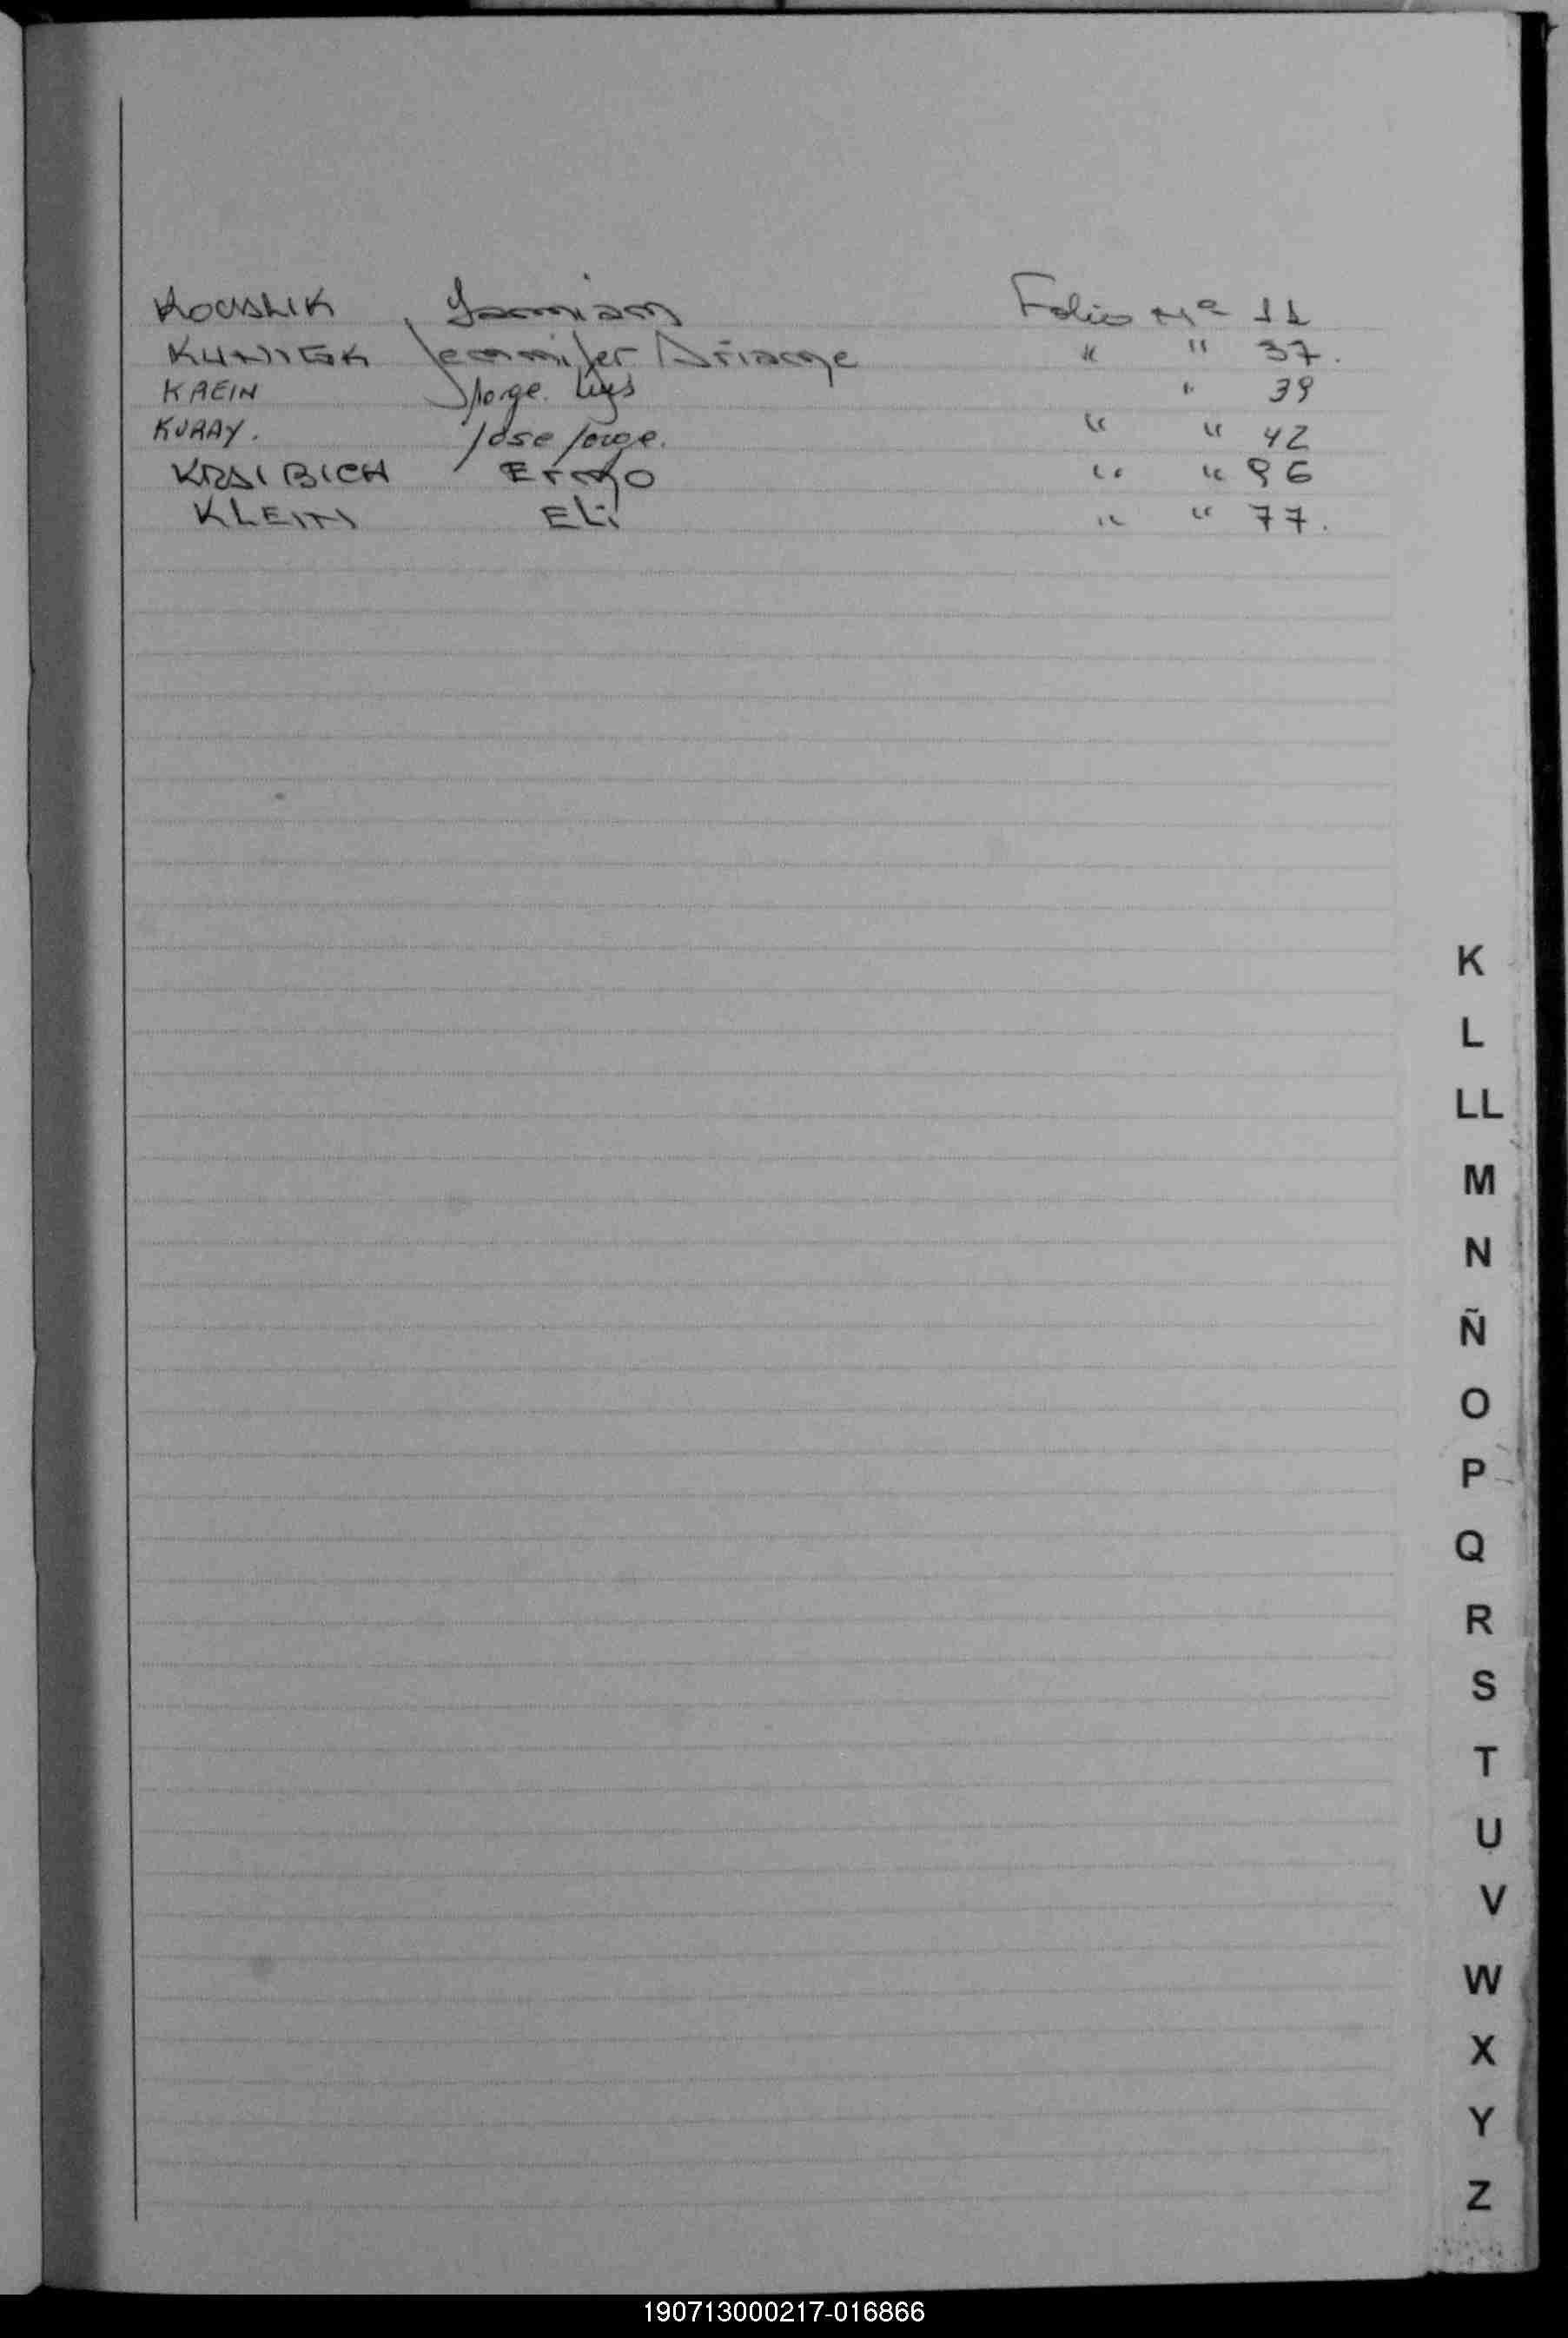 KOUSLIK , Damian Folio Nº 11
KUNIGK Jennifer Ariane " " 37.
KAEIN Jorge Luis " 39
KURAY. Jose Jorge. " " 42
KRAIBICH Erno " " 96
KLEIN Eli " " 77.
K
L
LL
M
N
Ñ
O
P
Q
R
S
T
U
V
W
X
Y
Z
190713000217-016866